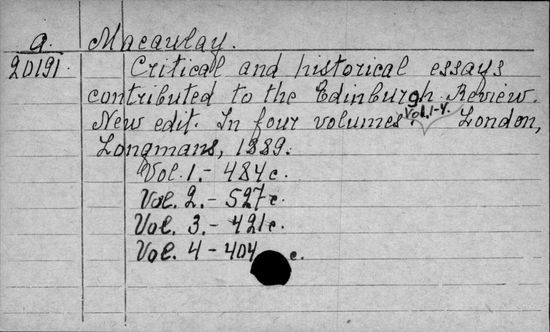 a. Macaulay.
20191. Critical and historical essays
contributed to the Edinburgh Review.
New edit. In four volumes. Vol. 1-4. London,
Longmans, 1889.
Vol. 1. - 484 c.
Vol. 2. - 527 c.
Vol. 3. - 421 c.
Vol. 4 - 404 c.